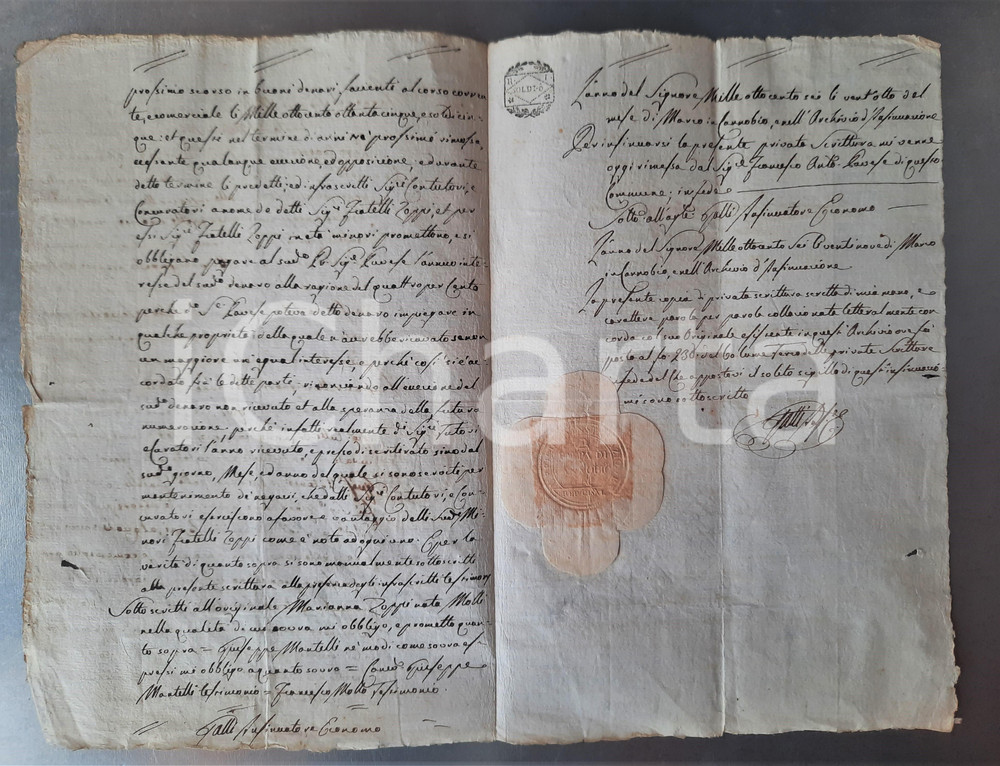 prossimo scorso in buoni denari facienti al corso corren
te, e comerciale L. Mille ottocento ottanta cinque, e soldi cin
que; et questo nel termine di anni tre prossimi
cessante qualunque eccezione, ed opposizione; e durante
detto termine li predetti, ed infrascritti Sigri Contutori, e
Concuratori a nome de detti Sigri Fratelli Zoppi, et per
essi Sigri Fratelli Zoppi in età minori promettono, e si
obbligano pagare al sudo Sigr Pavese l'annuo inte-
resse del sudo denaro alla ragione del quattro per Cento
perchè do Sr Pavese poteva detto denaro impiegare in
qualche proprietà, dalla quale n'avrebbe ricavato se non
un maggiore un'egual interesse, e perchè così si è ac
cordato frà le dette parti, rinonciando all'eccezione del
sudo denaro non ricevuto et alla speranza della futura
numerazione, perchè infatti realmente di Sigri Tutori
e Curatori l'anno ricevuto, e presso di se ritirato sino dal
sudo giorno, Mese, ed anno del quale si sono serviti per
mantenimento de negozi, che datti Sigri Contutori, e Con-
curatori eserciscono a favore, e vantaggio delli sudi Mi-
nori Fratelli Zoppi come è noto ad ogni uno; E per la
verità di quanto sopra si sono manualmente sottoscritti
alla presente scrittura alla presenza degli infrascritti testimonj
Sottoscritti all'originale Marianna Zoppi nata Molli
nella qualità di cui sovra mi obbligo, e prometto quan-
to sopra = Giuseppe Mantelli ne' modi come sovra es-
pressi mi obbligo a quanto sovra = Giuseppe
Mantelli testimonio = Francesco Molto Testimonio
Galli Insinuatore Economo
SOLDI
L'anno del Signore Mille otto cento sei li vent'otto del
mese di Marzo in Cannobio, e nell'Archivio d'Insinuazione
Per insinuarsi la presente privata Scrittura mi venne
oggi rimessa dal Sigre Francesco Anto Pavese di questo
Commune; in fede
Sotto all'arte Galli Insinuatore Economo
L'anno del Signore Mille ottocento Sei li venti nove di Marzo
in Cannobio, e nell'Archivio d'Insinuazione
La presente copia di privata scrittura scritta di mia mano, e
carattere parola per parola collazionata letteralmente con
corda col suo Originale esistente in questo Archivio ove fù
posto al fo 230 del Volume Terzo delle private Scritture
in fede del che appostovi il solito sigillo di questa insinuazione
mi sono sottoscritto
Galli
iCharta